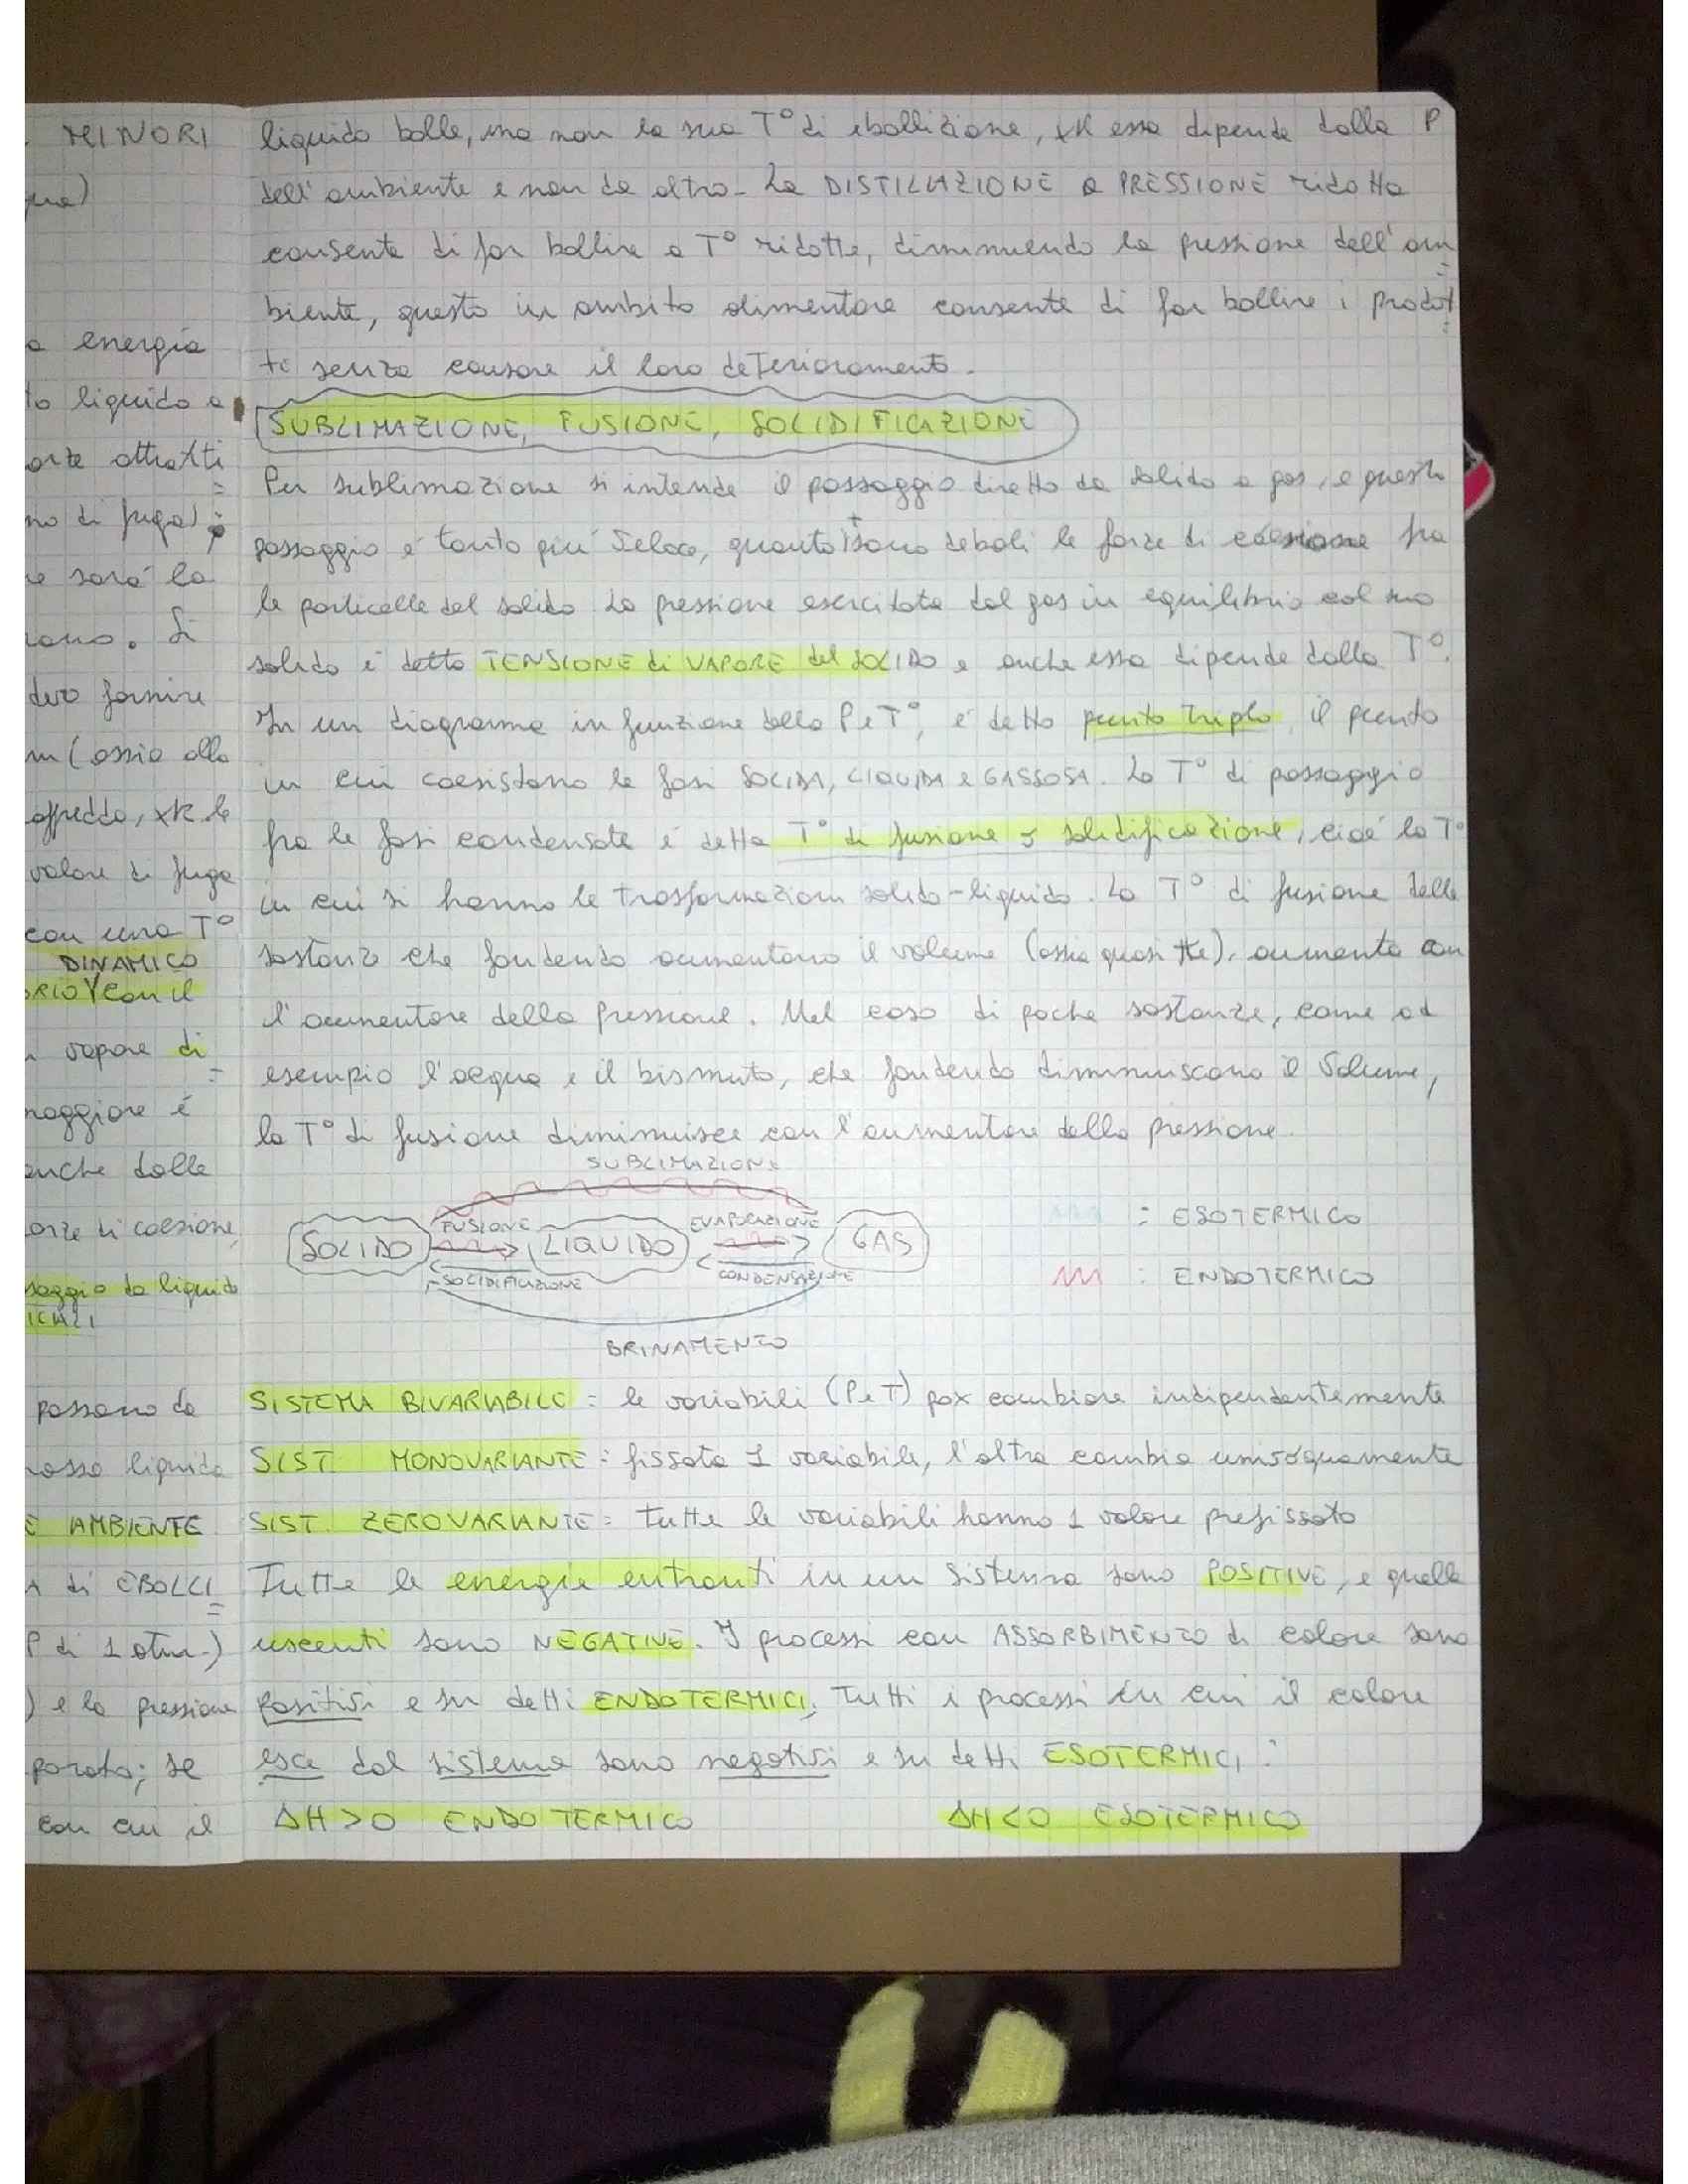 MINORI
energia
to liquido e
orze attratti
no di fuga)
re sarà la
Si
dero fornire
m (ossia alla
affredda, xk le
valore di fuga
con una T°
DINAMICO
ORIO con il
vapore di
maggiore è
anche dalle
orze di coesione,
saggio da liquido
ICALI
possono da
massa liquida
E AMBIENTE
A di EBOLLI
P di 1 atm.)
) e la pressione
porata; se
con cui il
liquido bolle, ma non la sua T° di ebollizione, xk essa dipende dalla P
dell'ambiente e non da altro. La DISTILLAZIONE a PRESSIONE ridotta
consente di far bollire a T° ridotte, diminuendo la pressione dell'am
biente, questo in ambito alimentare consente di far bollire i prodot
ti senza causare il loro deterioramento.
SUBLIMAZIONE, FUSIONE, SOLIDIFICAZIONE
Per sublimazione si intende il passaggio diretto da solido a gas, e questo
passaggio è tanto più veloce, quanto + sono deboli le forze di coesione fra
le particelle del solido. La pressione esercitata dal gas in equilibrio col suo
solido è detta TENSIONE di VAPORE del SOLIDO e anche essa dipende dalla T°.
In un diagramma in funzione della P e T°, è detto punto triplo, il punto
in cui coesistono le fasi SOLIDA, LIQUIDA e GASSOSA. La T° di passaggio
fra le fasi condensate è detta T° di fusione o solidificazione, cioè la T°
in cui si hanno le trasformazioni solido-liquido. La T° di fusione delle
sostanze che fondendo aumentano il volume (ossia quasi tte), aumenta con
l'aumentare della pressione. Nel caso di poche sostanze, come ad
esempio l'acqua e il bismuto, che fondendo diminuiscono il volume,
la T° di fusione diminuisce con l'aumentare della pressione.
SUBLIMAZIONE
FUSIONE EVAPORAZIONE
SOLIDO LIQUIDO GAS
SOLIDIFICAZIONE CONDENSAZIONE
BRINAMENTO
: ESOTERMICO
: ENDOTERMICO
SISTEMA BIVARIABILE = le variabili (P e T) pox cambiare indipendentemente
SIST. MONOVARIANTE = fissata 1 variabile, l'altra cambia univoquamente
SIST. ZEROVARIANTE = tutte le variabili hanno 1 valore prefissato
Tutte le energie entranti in un sistema sono POSITIVE, e quelle
uscenti sono NEGATIVE. I processi con ASSORBIMENTO di calore sono
positivi e sn detti ENDOTERMICI, Tutti i processi in cui il calore
esce dal sistema sono negativi e sn detti ESOTERMICI:
ΔH>0 ENDOTERMICO ΔH<0 ESOTERMICO